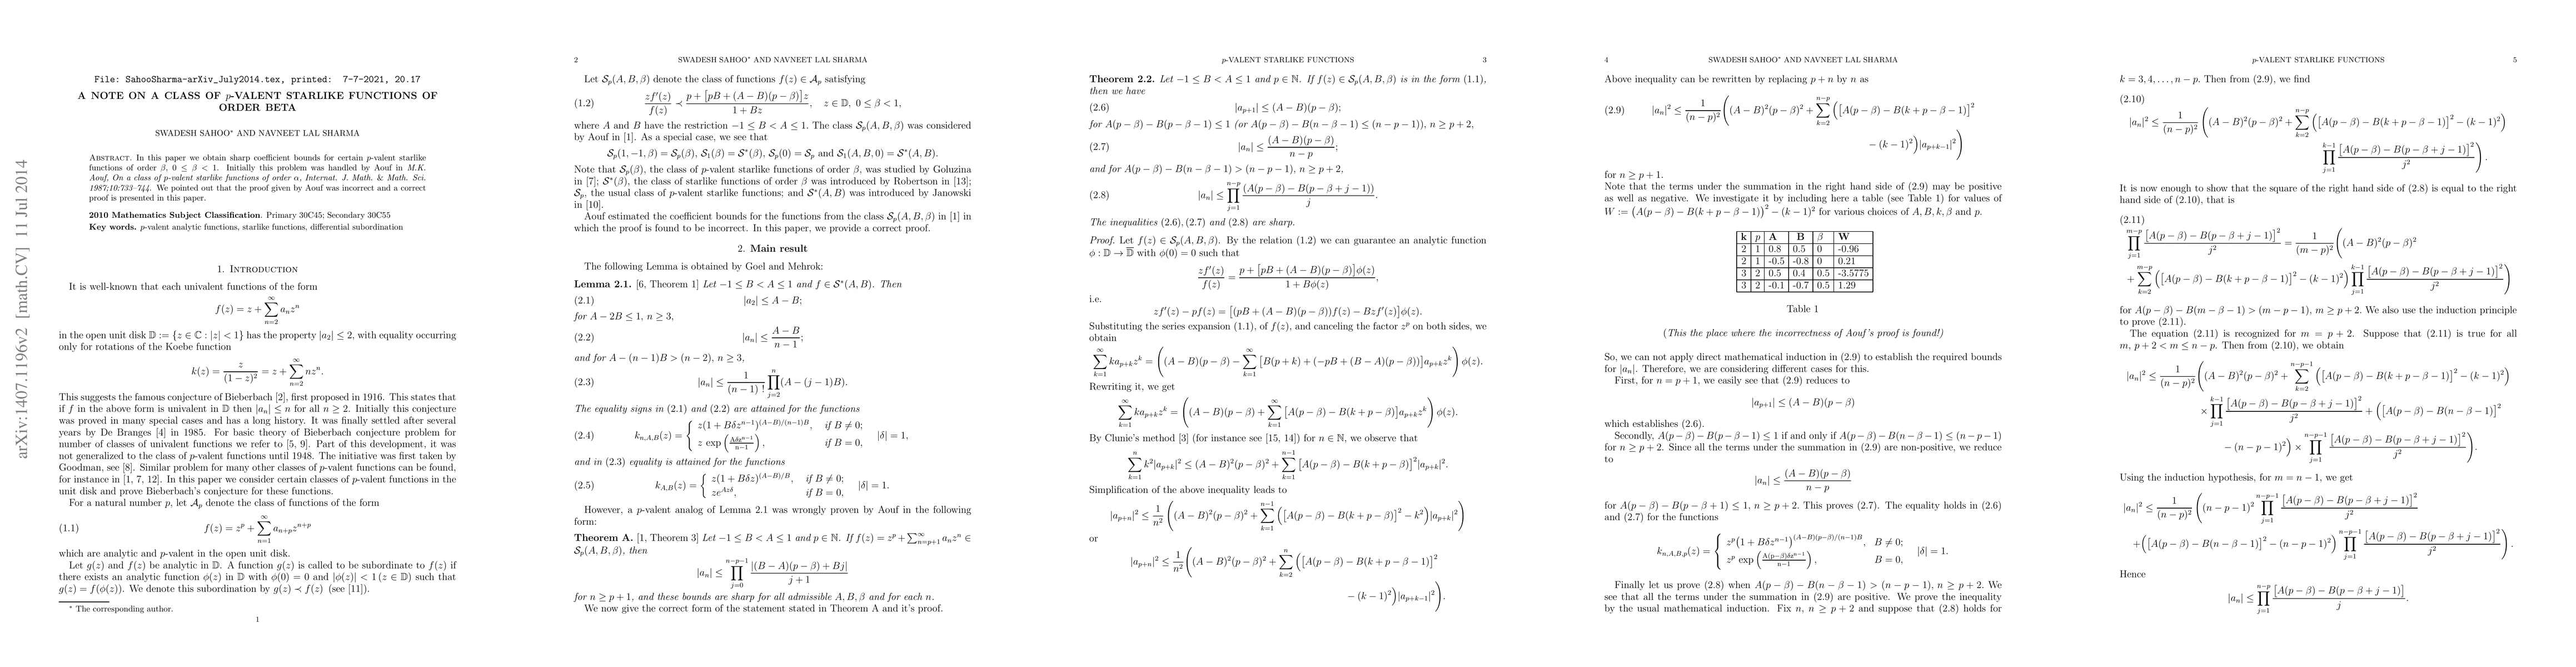 arXiv:1407.1196v2 [math.CV] 11 Jul 2014
File: SahooSharma-arXiv_July2014.tex, printed: 7-7-2021, 20.17
A NOTE ON A CLASS OF p-VALENT STARLIKE FUNCTIONS OF
ORDER BETA
SWADESH SAHOO* AND NAVNEET LAL SHARMA
Abstract. In this paper we obtain sharp coefficient bounds for certain p-valent starlike
functions of order β, 0 ≤ β < 1. Initially this problem was handled by Aouf in M.K.
Aouf, On a class of p-valent starlike functions of order α, Internat. J. Math. & Math. Sci.
1987;10:733–744. We pointed out that the proof given by Aouf was incorrect and a correct
proof is presented in this paper.
2010 Mathematics Subject Classification. Primary 30C45; Secondary 30C55
Key words. p-valent analytic functions, starlike functions, differential subordination
1. Introduction
It is well-known that each univalent functions of the form
f(z) = z + ∑_{n=2}^{∞} a_n z^n
in the open unit disk 𝔻 := {z ∈ ℂ : |z| < 1} has the property |a_2| ≤ 2, with equality occurring
only for rotations of the Koebe function
k(z) = z/(1 − z)^2 = z + ∑_{n=2}^{∞} n z^n.
This suggests the famous conjecture of Bieberbach [2], first proposed in 1916. This states that
if f in the above form is univalent in 𝔻 then |a_n| ≤ n for all n ≥ 2. Initially this conjecture
was proved in many special cases and has a long history. It was finally settled after several
years by De Branges [4] in 1985. For basic theory of Bieberbach conjecture problem for
number of classes of univalent functions we refer to [5, 9]. Part of this development, it was
not generalized to the class of p-valent functions until 1948. The initiative was first taken by
Goodman, see [8]. Similar problem for many other classes of p-valent functions can be found,
for instance in [1, 7, 12]. In this paper we consider certain classes of p-valent functions in the
unit disk and prove Bieberbach's conjecture for these functions.
For a natural number p, let 𝒜_p denote the class of functions of the form
(1.1) f(z) = z^p + ∑_{n=1}^{∞} a_{n+p} z^{n+p}
which are analytic and p-valent in the open unit disk.
Let g(z) and f(z) be analytic in 𝔻. A function g(z) is called to be subordinate to f(z) if
there exists an analytic function ϕ(z) in 𝔻 with ϕ(0) = 0 and |ϕ(z)| < 1 (z ∈ 𝔻) such that
g(z) = f(ϕ(z)). We denote this subordination by g(z) ≺ f(z) (see [11]).
* The corresponding author.
1
2 SWADESH SAHOO* AND NAVNEET LAL SHARMA
Let 𝒮_p(A, B, β) denote the class of functions f(z) ∈ 𝒜_p satisfying
(1.2) zf′(z)/f(z) ≺ (p + [pB + (A − B)(p − β)]z)/(1 + Bz), z ∈ 𝔻, 0 ≤ β < 1,
where A and B have the restriction −1 ≤ B < A ≤ 1. The class 𝒮_p(A, B, β) was considered
by Aouf in [1]. As a special case, we see that
𝒮_p(1, −1, β) = 𝒮_p(β), 𝒮_1(β) = 𝒮*(β), 𝒮_p(0) = 𝒮_p and 𝒮_1(A, B, 0) = 𝒮*(A, B).
Note that 𝒮_p(β), the class of p-valent starlike functions of order β, was studied by Goluzina
in [7]; 𝒮*(β), the class of starlike functions of order β was introduced by Robertson in [13];
𝒮_p, the usual class of p-valent starlike functions; and 𝒮*(A, B) was introduced by Janowski
in [10].
Aouf estimated the coefficient bounds for the functions from the class 𝒮_p(A, B, β) in [1] in
which the proof is found to be incorrect. In this paper, we provide a correct proof.
2. Main result
The following Lemma is obtained by Goel and Mehrok:
Lemma 2.1. [6, Theorem 1] Let −1 ≤ B < A ≤ 1 and f ∈ 𝒮*(A, B). Then
(2.1) |a_2| ≤ A − B;
for A − 2B ≤ 1, n ≥ 3,
(2.2) |a_n| ≤ (A − B)/(n − 1);
and for A − (n − 1)B > (n − 2), n ≥ 3,
(2.3) |a_n| ≤ 1/(n − 1)! ∏_{j=2}^{n} (A − (j − 1)B).
The equality signs in (2.1) and (2.2) are attained for the functions
(2.4) k_{n,A,B}(z) = { z(1 + Bδz^{n−1})^{(A−B)/(n−1)B}, if B ≠ 0; z exp(Aδz^{n−1}/(n−1)), if B = 0, |δ| = 1,
and in (2.3) equality is attained for the functions
(2.5) k_{A,B}(z) = { z(1 + Bδz)^{(A−B)/B}, if B ≠ 0; ze^{Azδ}, if B = 0, |δ| = 1.
However, a p-valent analog of Lemma 2.1 was wrongly proven by Aouf in the following
form:
Theorem A. [1, Theorem 3] Let −1 ≤ B < A ≤ 1 and p ∈ ℕ. If f(z) = z^p + ∑_{n=p+1}^{∞} a_n z^n ∈
𝒮_p(A, B, β), then
|a_n| ≤ ∏_{j=0}^{n−p−1} |(B − A)(p − β) + Bj|/(j + 1)
for n ≥ p + 1, and these bounds are sharp for all admissible A, B, β and for each n.
We now give the correct form of the statement stated in Theorem A and it's proof.
p-VALENT STARLIKE FUNCTIONS 3
Theorem 2.2. Let −1 ≤ B < A ≤ 1 and p ∈ ℕ. If f(z) ∈ 𝒮_p(A, B, β) is in the form (1.1),
then we have
(2.6) |a_{p+1}| ≤ (A − B)(p − β);
for A(p − β) − B(p − β − 1) ≤ 1 (or A(p − β) − B(n − β − 1) ≤ (n − p − 1)), n ≥ p + 2,
(2.7) |a_n| ≤ (A − B)(p − β)/(n − p);
and for A(p − β) − B(n − β − 1) > (n − p − 1), n ≥ p + 2,
(2.8) |a_n| ≤ ∏_{j=1}^{n−p} (A(p − β) − B(p − β + j − 1))/j.
The inequalities (2.6), (2.7) and (2.8) are sharp.
Proof. Let f(z) ∈ 𝒮_p(A, B, β). By the relation (1.2) we can guarantee an analytic function
ϕ : 𝔻 → 𝔻̅ with ϕ(0) = 0 such that
zf′(z)/f(z) = (p + [pB + (A − B)(p − β)]ϕ(z))/(1 + Bϕ(z)),
i.e.
zf′(z) − pf(z) = [(pB + (A − B)(p − β))f(z) − Bzf′(z)]ϕ(z).
Substituting the series expansion (1.1), of f(z), and canceling the factor z^p on both sides, we
obtain
∑_{k=1}^{∞} k a_{p+k} z^k = ( (A − B)(p − β) − ∑_{k=1}^{∞} [B(p + k) + (−pB + (B − A)(p − β))]a_{p+k} z^k ) ϕ(z).
Rewriting it, we get
∑_{k=1}^{∞} k a_{p+k} z^k = ( (A − B)(p − β) + ∑_{k=1}^{∞} [A(p − β) − B(k + p − β)]a_{p+k} z^k ) ϕ(z).
By Clunie's method [3] (for instance see [15, 14]) for n ∈ ℕ, we observe that
∑_{k=1}^{n} k^2|a_{p+k}|^2 ≤ (A − B)^2(p − β)^2 + ∑_{k=1}^{n−1} [A(p − β) − B(k + p − β)]^2 |a_{p+k}|^2.
Simplification of the above inequality leads to
|a_{p+n}|^2 ≤ 1/n^2 ( (A − B)^2(p − β)^2 + ∑_{k=1}^{n−1} ([A(p − β) − B(k + p − β)]^2 − k^2)|a_{p+k}|^2 )
or
|a_{p+n}|^2 ≤ 1/n^2 ( (A − B)^2(p − β)^2 + ∑_{k=2}^{n} ([A(p − β) − B(k + p − β − 1)]^2
− (k − 1)^2)|a_{p+k−1}|^2 ).
4 SWADESH SAHOO* AND NAVNEET LAL SHARMA
Above inequality can be rewritten by replacing p + n by n as
(2.9) |a_n|^2 ≤ 1/(n − p)^2 ( (A − B)^2(p − β)^2 + ∑_{k=2}^{n−p} ([A(p − β) − B(k + p − β − 1)]^2
− (k − 1)^2)|a_{p+k−1}|^2 )
for n ≥ p + 1.
Note that the terms under the summation in the right hand side of (2.9) may be positive
as well as negative. We investigate it by including here a table (see Table 1) for values of
W := (A(p − β) − B(k + p − β − 1))^2 − (k − 1)^2 for various choices of A, B, k, β and p.
k p A B β W
2 1 0.8 0.5 0 -0.96
2 1 -0.5 -0.8 0 0.21
3 2 0.5 0.4 0.5 -3.5775
3 2 -0.1 -0.7 0.5 1.29
Table 1
(This the place where the incorrectness of Aouf's proof is found!)
So, we can not apply direct mathematical induction in (2.9) to establish the required bounds
for |a_n|. Therefore, we are considering different cases for this.
First, for n = p + 1, we easily see that (2.9) reduces to
|a_{p+1}| ≤ (A − B)(p − β)
which establishes (2.6).
Secondly, A(p − β) − B(p − β − 1) ≤ 1 if and only if A(p − β) − B(n − β − 1) ≤ (n − p − 1)
for n ≥ p + 2. Since all the terms under the summation in (2.9) are non-positive, we reduce
to
|a_n| ≤ (A − B)(p − β)/(n − p)
for A(p − β) − B(p − β + 1) ≤ 1, n ≥ p + 2. This proves (2.7). The equality holds in (2.6)
and (2.7) for the functions
k_{n,A,B,p}(z) = { z^p(1 + Bδz^{n−1})^{(A−B)(p−β)/(n−1)B}, B ≠ 0; z^p exp(A(p−β)δz^{n−1}/(n−1)), B = 0, |δ| = 1.
Finally let us prove (2.8) when A(p − β) − B(n − β − 1) > (n − p − 1), n ≥ p + 2. We
see that all the terms under the summation in (2.9) are positive. We prove the inequality
by the usual mathematical induction. Fix n, n ≥ p + 2 and suppose that (2.8) holds for
p-VALENT STARLIKE FUNCTIONS 5
k = 3, 4, . . . , n − p. Then from (2.9), we find
(2.10)
|a_n|^2 ≤ 1/(n − p)^2 ( (A − B)^2(p − β)^2 + ∑_{k=2}^{n−p} ([A(p − β) − B(k + p − β − 1)]^2 − (k − 1)^2)
∏_{j=1}^{k−1} [A(p − β) − B(p − β + j − 1)]^2/j^2 ).
It is now enough to show that the square of the right hand side of (2.8) is equal to the right
hand side of (2.10), that is
(2.11)
∏_{j=1}^{m−p} [A(p − β) − B(p − β + j − 1)]^2/j^2 = 1/(m − p)^2 ( (A − B)^2(p − β)^2
+ ∑_{k=2}^{m−p} ([A(p − β) − B(k + p − β − 1)]^2 − (k − 1)^2) ∏_{j=1}^{k−1} [A(p − β) − B(p − β + j − 1)]^2/j^2 )
for A(p − β) − B(m − β − 1) > (m − p − 1), m ≥ p + 2. We also use the induction principle
to prove (2.11).
The equation (2.11) is recognized for m = p + 2. Suppose that (2.11) is true for all
m, p + 2 < m ≤ n − p. Then from (2.10), we obtain
|a_n|^2 ≤ 1/(n − p)^2 ( (A − B)^2(p − β)^2 + ∑_{k=2}^{n−p−1} ([A(p − β) − B(k + p − β − 1)]^2 − (k − 1)^2)
× ∏_{j=1}^{k−1} [A(p − β) − B(p − β + j − 1)]^2/j^2 + ([A(p − β) − B(n − β − 1)]^2
− (n − p − 1)^2) × ∏_{j=1}^{n−p−1} [A(p − β) − B(p − β + j − 1)]^2/j^2 ).
Using the induction hypothesis, for m = n − 1, we get
|a_n|^2 ≤ 1/(n − p)^2 ( (n − p − 1)^2 ∏_{j=1}^{n−p−1} [A(p − β) − B(p − β + j − 1)]^2/j^2
+ ([A(p − β) − B(n − β − 1)]^2 − (n − p − 1)^2) ∏_{j=1}^{n−p−1} [A(p − β) − B(p − β + j − 1)]^2/j^2 ).
Hence
|a_n| ≤ ∏_{j=1}^{n−p} [A(p − β) − B(p − β + j − 1)]/j.